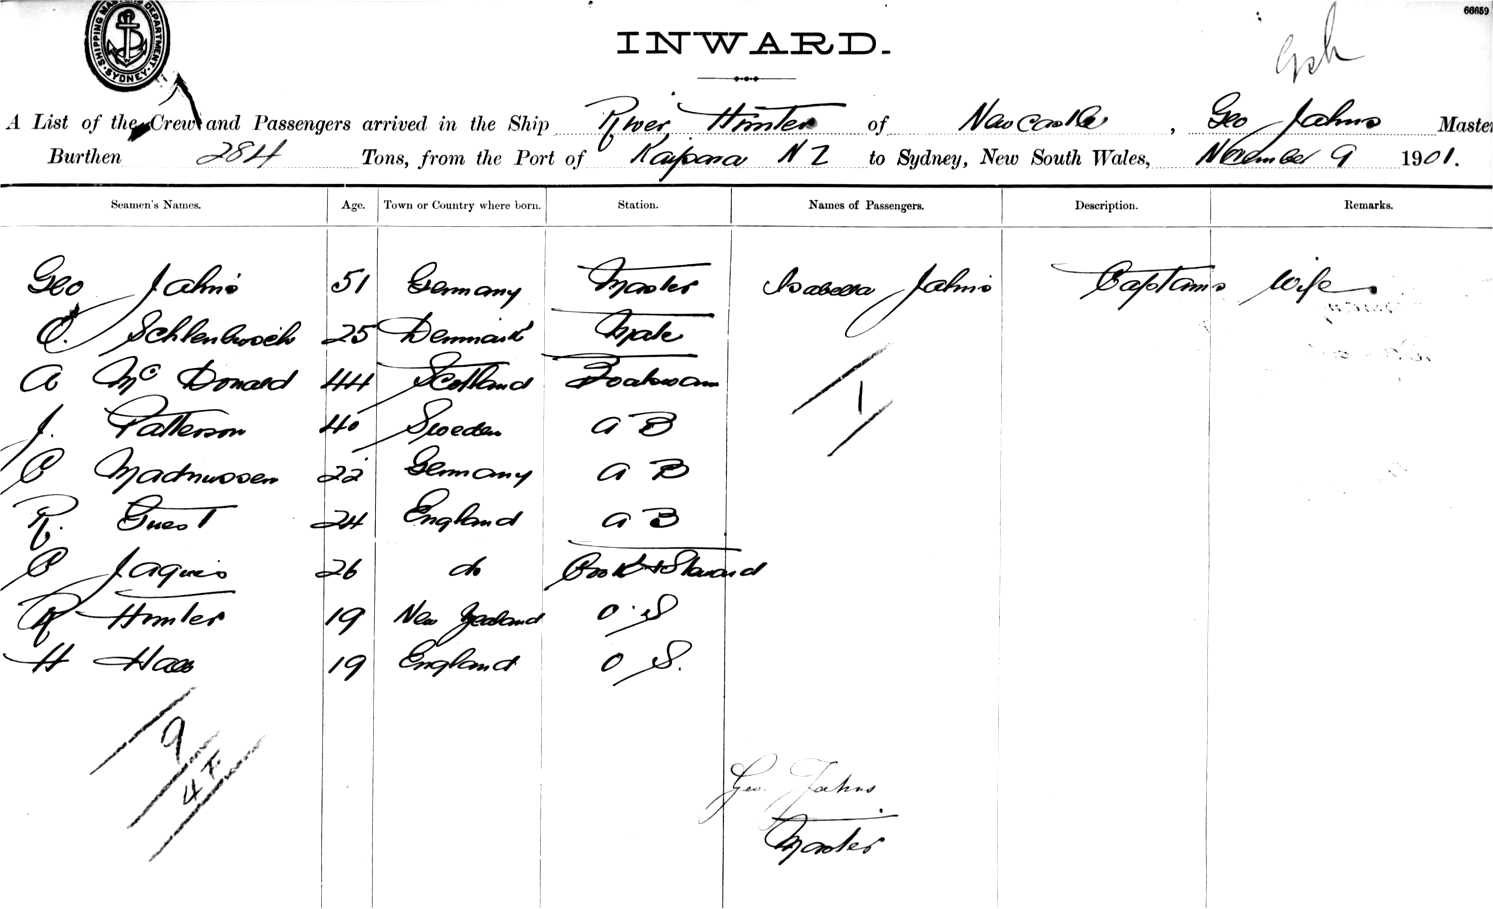 66659
SHIPPING MASTERS DEPARTMENT. SYDNEY.
INWARD.
A List of the Crew and Passengers arrived in the Ship River Hunter of Newcastle, Geo Jahns Master
Burthen 284 Tons, from the Port of Kaipara N Z to Sydney, New South Wales, November 9 1901.
Seamen's Names. Age. Town or Country where born. Station. Names of Passengers. Description. Remarks.
Geo Jahns 51 Germany Master Isabella Jahns Captains Wife
25 Denmark Mate
A McDonald 44 Scotland Boatswain
J. Patterson 40 Sweden A B
C Madnussen 22 Germany A B
R. Guest 24 England A B
C Jaques 26 do Cook & Steward
R Hunter 19 New Zealand O. S
H 19 England O S.
1
9
4 F.
Geo. Jahns
Master